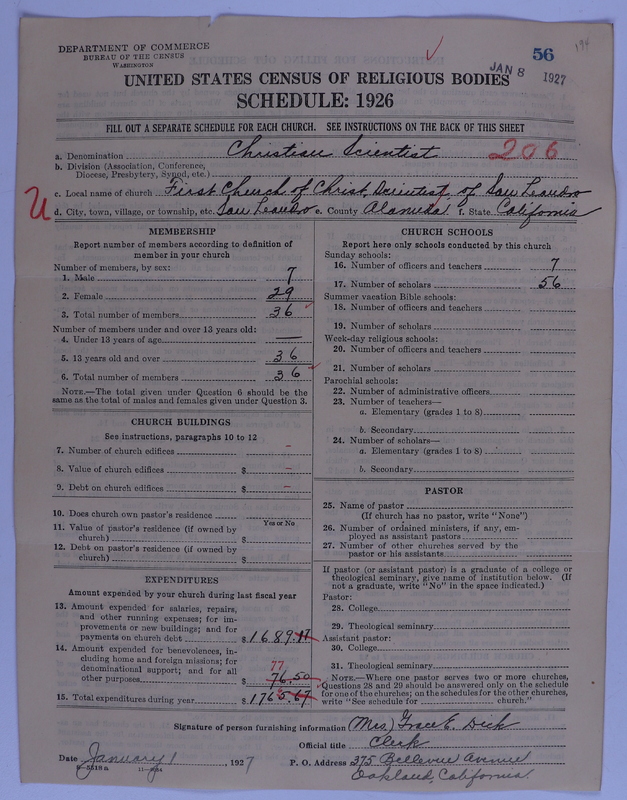 DEPARTMENT OF COMMERCE
BUREAU OF THE CENSUS
WASHINGTON
56
194
JAN 8 1927
UNITED STATES CENSUS OF RELIGIOUS BODIES
SCHEDULE: 1926
FILL OUT A SEPARATE SCHEDULE FOR EACH CHURCH. SEE INSTRUCTIONS ON THE BACK OF THIS SHEET
a. Denomination Christian Scientist 206
b. Division (Association, Conference,
Diocese, Presbytery, Synod, etc.)
c. Local name of church First Church of Christ, Scientist, of San Leandro
U
d. City, town, village, or township, etc. San Leandro e. County Alameda f. State California
MEMBERSHIP
Report number of members according to definition of
member in your church
Number of members, by sex:
1. Male 7
2. Female 29
3. Total number of members 36
Number of members under and over 13 years old:
4. Under 13 years of age —
5. 13 years old and over 36
6. Total number of members 36
NOTE.—The total given under Question 6 should be the
same as the total of males and females given under Question 3.
CHURCH BUILDINGS
See instructions, paragraphs 10 to 12
7. Number of church edifices –
8. Value of church edifices $ –
9. Debt on church edifices $ –
10. Does church own pastor's residence
Yes or No
11. Value of pastor's residence (if owned by
church) $
12. Debt on pastor's residence (if owned by
church) $
EXPENDITURES
Amount expended by your church during last fiscal year
13. Amount expended for salaries, repairs,
and other running expenses; for im-
provements or new buildings; and for
payments on church debt $ 1689.17
14. Amount expended for benevolences, in-
cluding home and foreign missions; for
denominational support; and for all
other purposes $ 76.50
77
15. Total expenditures during year $ 1765.67
CHURCH SCHOOLS
Report here only schools conducted by this church
Sunday schools:
16. Number of officers and teachers 7
17. Number of scholars 56
Summer vacation Bible schools:
18. Number of officers and teachers
19. Number of scholars
Week-day religious schools:
20. Number of officers and teachers
21. Number of scholars
Parochial schools:
22. Number of administrative officers
23. Number of teachers—
a. Elementary (grades 1 to 8)
b. Secondary
24. Number of scholars—
a. Elementary (grades 1 to 8)
b. Secondary
PASTOR
25. Name of pastor
(If church has no pastor, write "None")
26. Number of ordained ministers, if any, em-
ployed as assistant pastors
27. Number of other churches served by the
pastor or his assistants
If pastor (or assistant pastor) is a graduate of a college or
theological seminary, give name of institution below. (If
not a graduate, write "No" in the space indicated.)
Pastor:
28. College
29. Theological seminary
Assistant pastor:
30. College
31. Theological seminary
NOTE.—Where one pastor serves two or more churches,
Questions 28 and 29 should be answered only on the schedule
for one of the churches; on the schedules for the other churches,
write "See schedule for church."
Signature of person furnishing information (Mrs) Grace E. Dick
Official title Clerk
Date January 1, 1927 P. O. Address 375 Bellevue Avenue
Oakland, California.